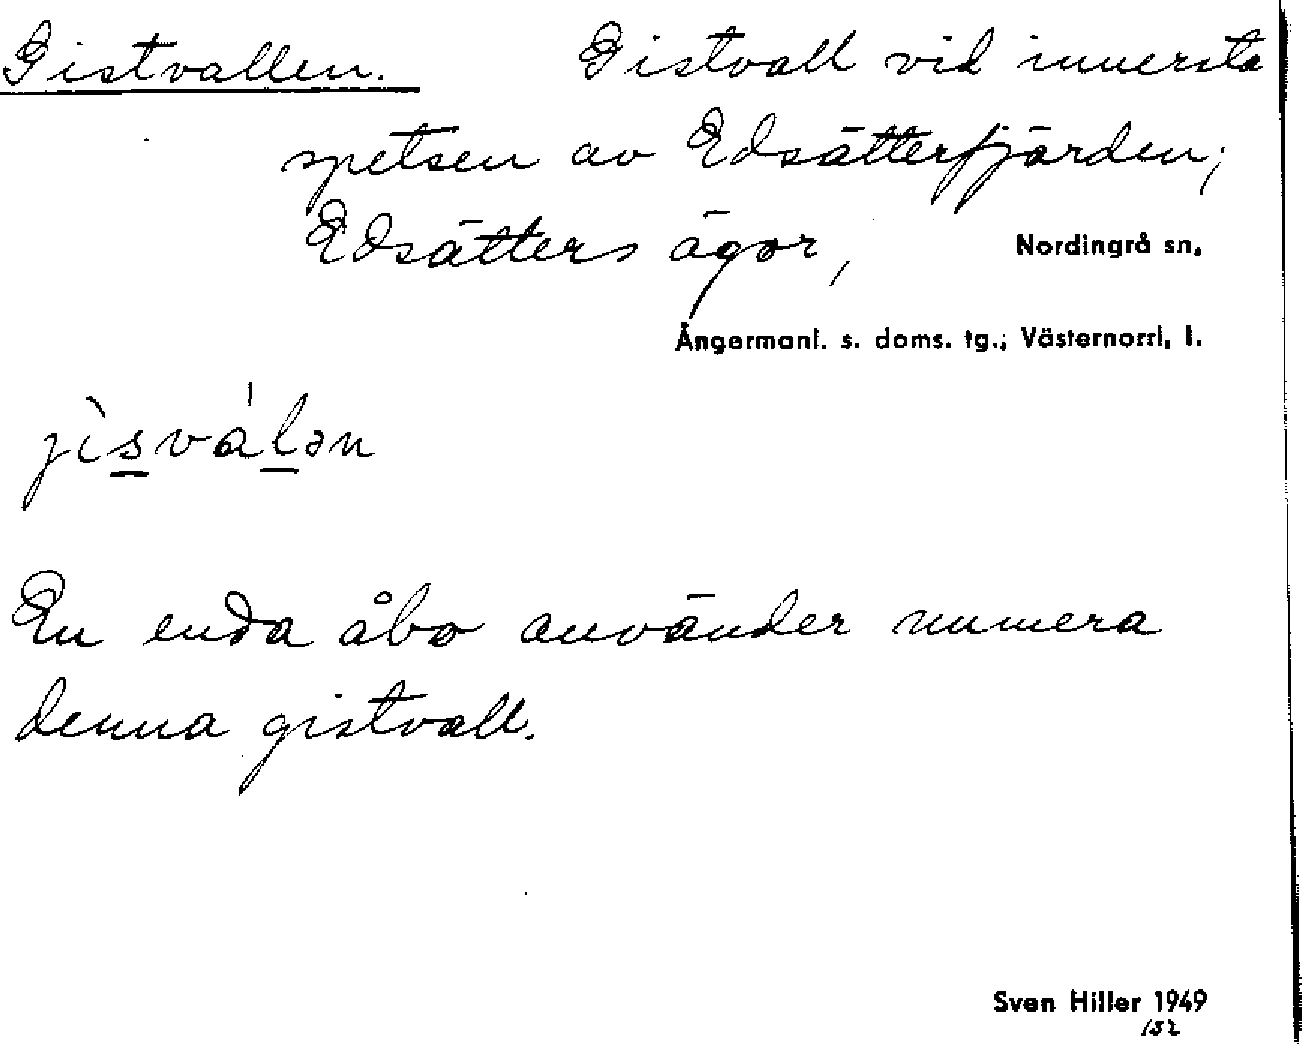 Gistvallen. Gistvall vid innersta
spetsen av Edsätterfjärden,
Edsätters ägor, Nordingrå sn,
Ångermanl. s. doms. tg.; Västernorrl. l.
jìsválən
En enda åbo använder numera
denna gistvall.
Sven Hiller 1949
152